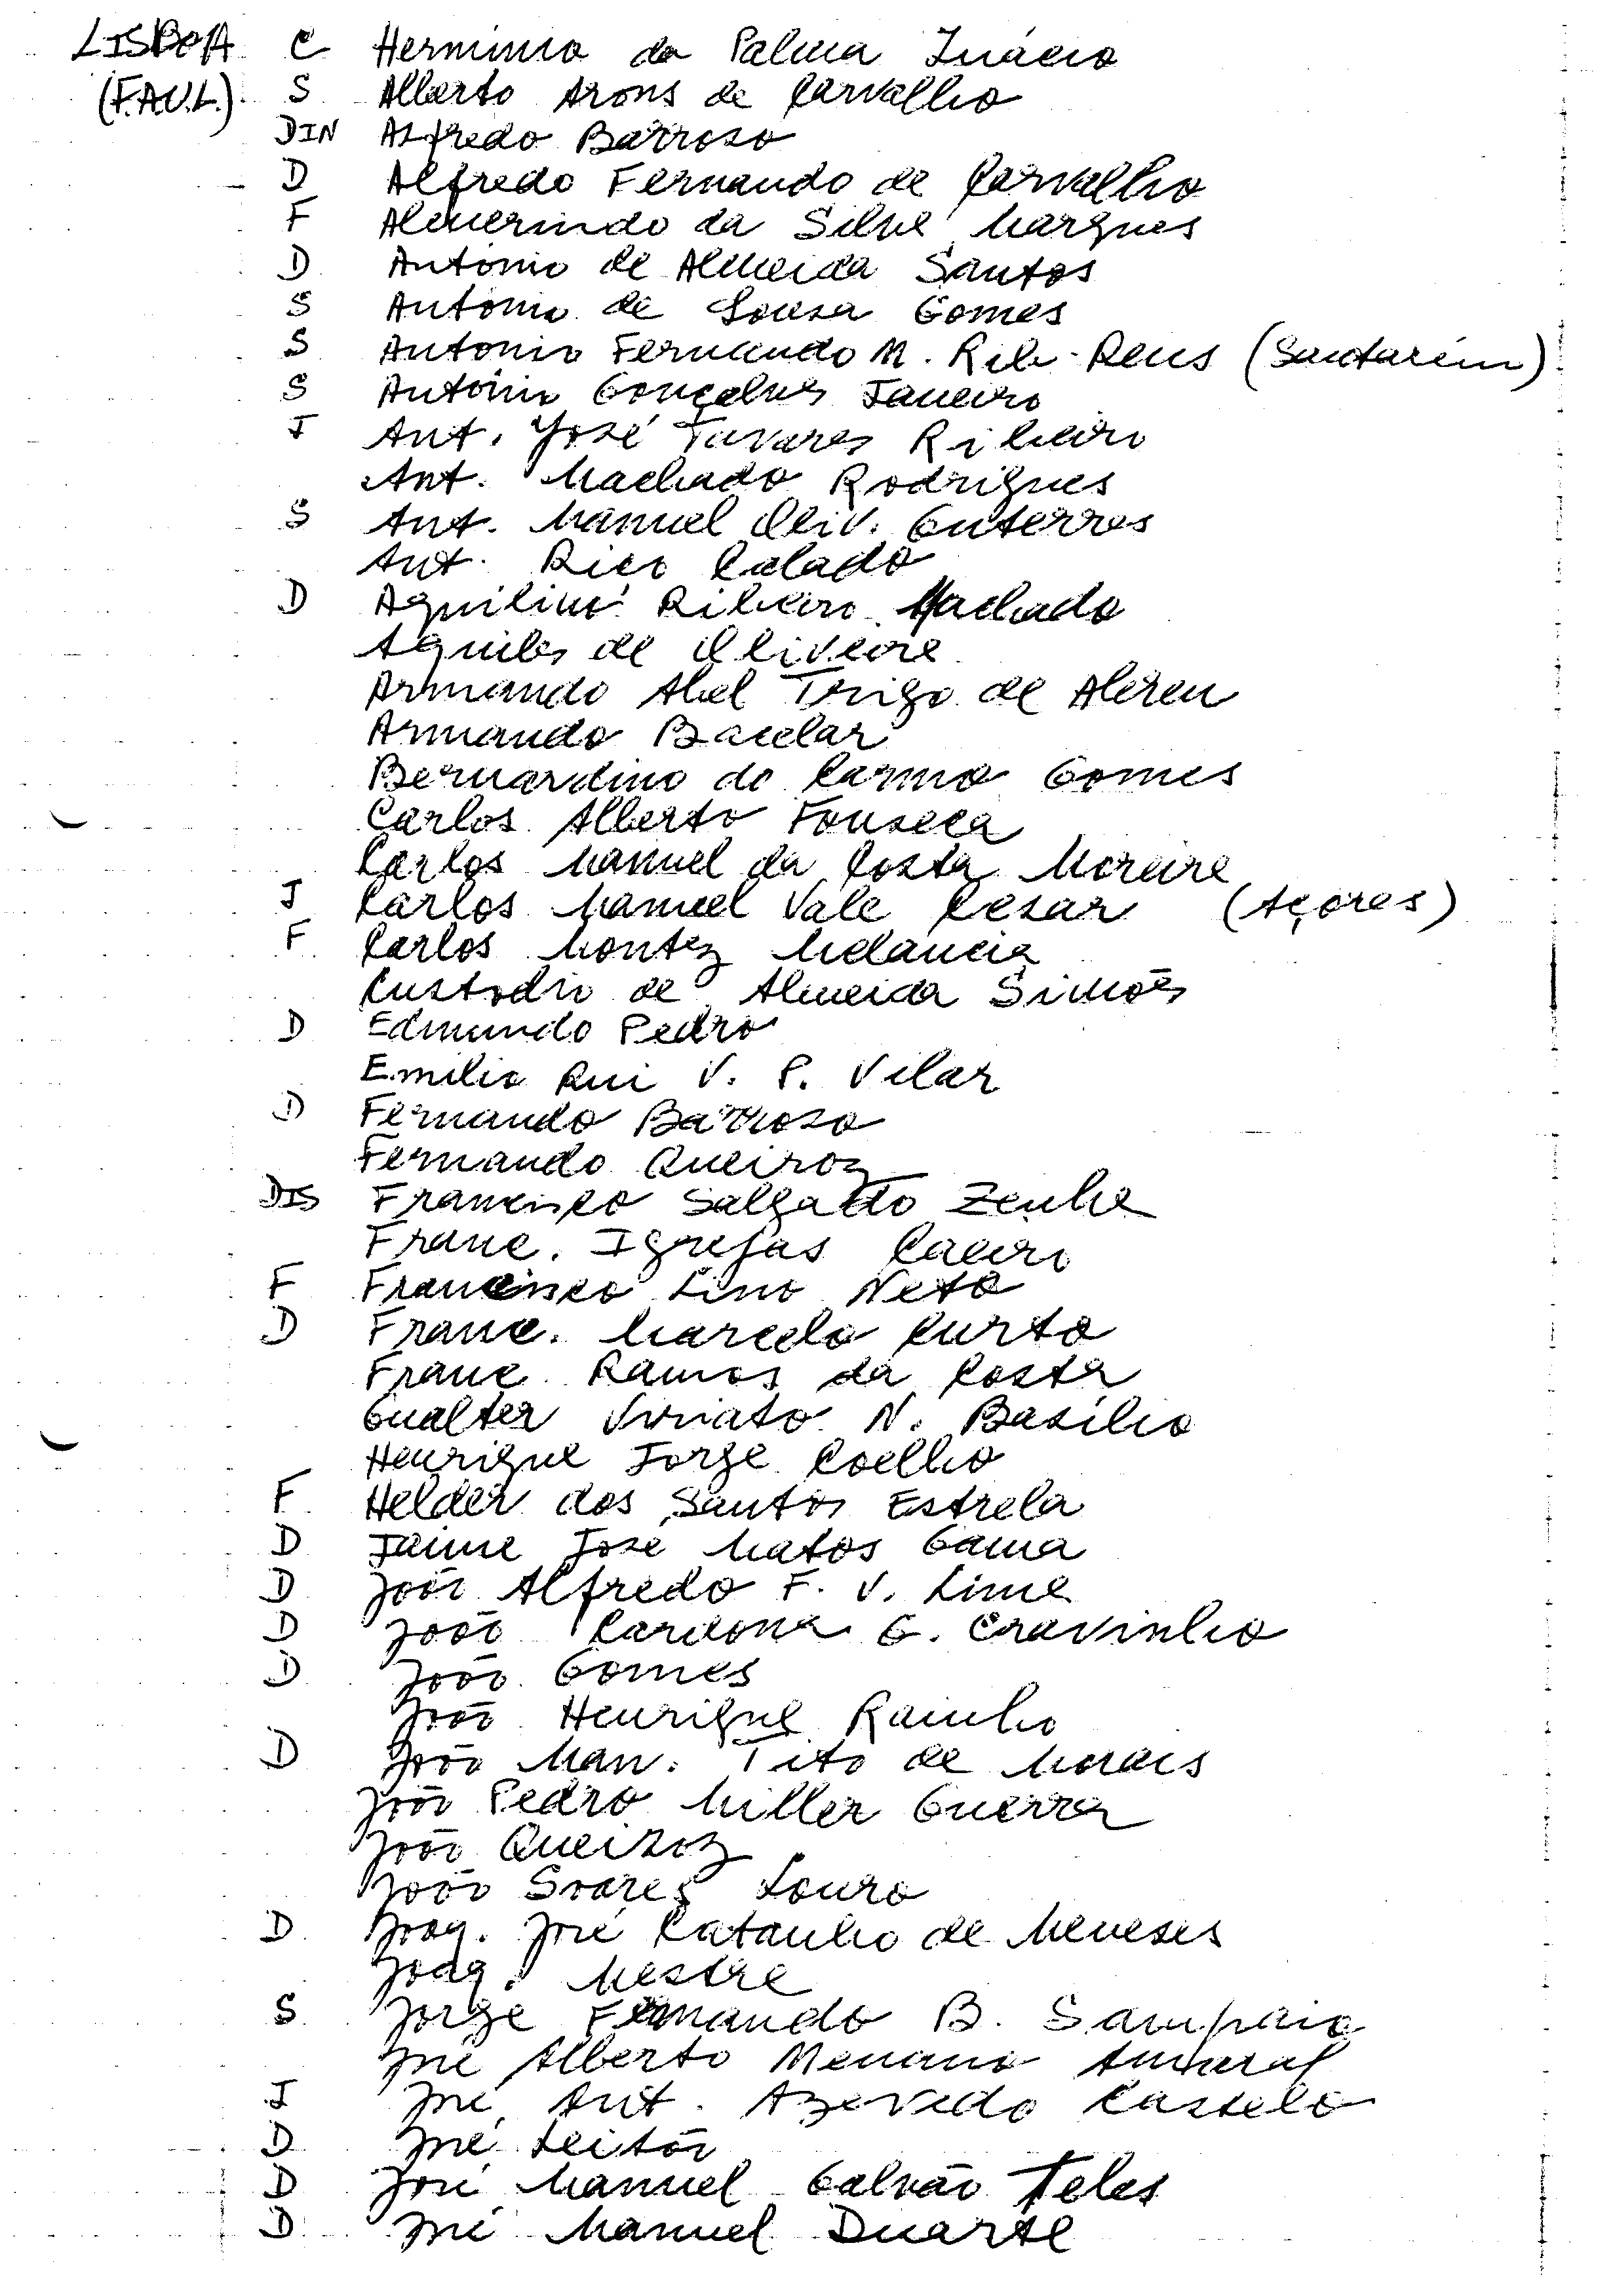 LISBOA C Herminio da Palma Inácio
(F.A.U.L.) S Alberto Arons de Carvalho
DIN Alfredo Barroso
D Alfredo Fernando de Carvalho
F Almerindo da Silva Marques
D António de Almeida Santos
S António de Sousa Gomes
S António Fernando M. Rib. Reis (Santarém)
S António Gonçalves Janeiro
J Ant. José Tavares Ribeiro
Ant. Machado Rodrigues
S Ant. Manuel Oliv. Guterres
Ant. Rico Calado
D Aquilino Ribeiro Machado
Aquiles de Oliveira
Armando Abel Trigo de Abreu
Armando Bacelar
Bernardino do Carmo Gomes
Carlos Alberto Fonseca
Carlos Manuel da Costa Moreira
J Carlos Manuel Vale Cesar (Açores)
F Carlos Montez Melancia
Custodio de Almeida Simões
D Edmundo Pedro
Emilio Rui V. P. Vilar
D Fernando Barroso
Fernando Queiroz
DIS Francisco Salgado Zenha
Franc. Igrejas Caeiro
F Francisco Lino Neto
D Franc. Marcelo Curto
Franc. Ramos da Costa
Gualter Viriato N. Basílio
Henrique Jorge Coelho
F Helder dos Santos Estrela
D Jaime José Matos Gama
D João Alfredo F. V. Lima
D João Cardona G. Cravinho
D João Gomes
João Henrique Rainho
D João Man. Tito de Morais
João Pedro Miller Guerra
João Queiroz
João Soares Louro
D Joaq. José Catanho de Meneses
Joaq. Mestre
S Jorge Fernando B. Sampaio
José Alberto Menano Amaral
J José Ant. Azevedo Castelo
D José Leitão
D José Manuel Galvão Teles
D José Manuel Duarte